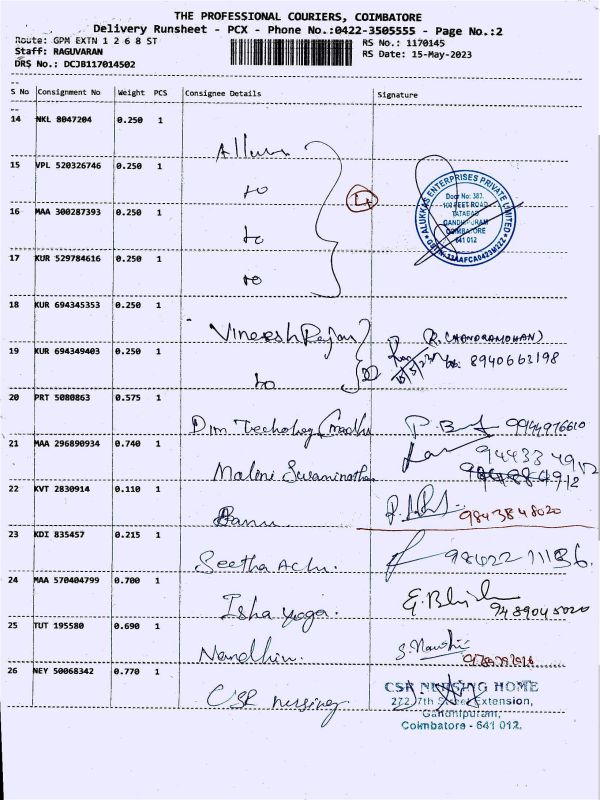 THE PROFESSIONAL COURIERS, COIMBATORE
Delivery Runsheet - PCX - Phone No.:0422-3505555 - Page No.:2
Route: GPM EXTN 1 2 6 8 ST
Staff: RAGUVARAN
DRS No.: DCJB117014502
RS No.: 1170145
RS Date: 15-May-2023
S No Consignment No Weight PCS Consignee Details Signature
14 NKL 8047204 0.250 1
15 VPL 520326746 0.250 1
to
16 MAA 300287393 0.250 1
to
17 KUR 529784616 0.250 1
to
ALUKKAS ENTERPRISES PRIVATE LIMITED
Door No: 383,
100 FEET ROAD,
TATABAD
GANDHIPURAM
COIMBATORE
641 012
18 KUR 694345353 0.250 1
Vineesh Rajan (R. CHANDRAMOHAN)
19 KUR 694349403 0.250 1
15/5/23 8940663198
to
20 PRT 5080863 0.575 1
21 MAA 296890934 0.740 1
Malini Swaminathan
22 KVT 2830914 0.110 1
Banu 9843848020
23 KDI 835457 0.215 1
Seetha Achi.
24 MAA 570404799 0.700 1
Isha yoga. 9489045020
25 TUT 195580 0.690 1
Nandhin.
26 NEY 50068342 0.770 1
CSR nursing
CSR NURSING HOME
272, 7th Street Extension,
Gandhipuram,
Coimbatore - 641 012.